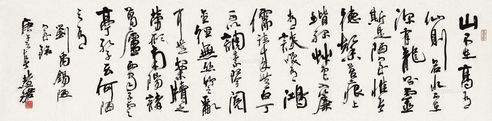 山不在高有
仙則名水不在
深有龍則靈
斯是陋室惟吾
德馨苔痕上
階綠草色入簾
青談笑有鴻
儒往來無白丁
可以調素琴閱
金經無絲竹之亂
耳無案牘之
勞形南陽諸
葛廬西蜀子雲
亭孔子云何陋
之有
劉禹錫陋
室銘